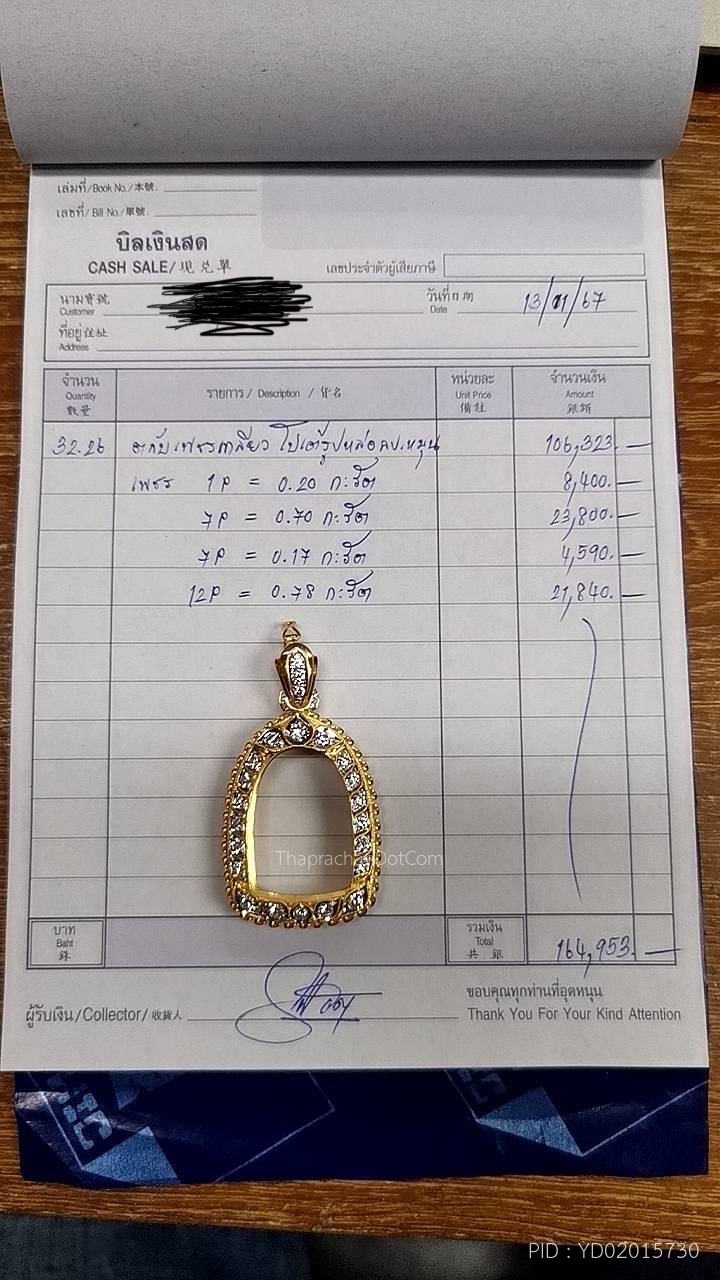 เล่มที่/Book No./本號.
เลขที่/ Bill No./單號.
บิลเงินสด
CASH SALE/現兌單
เลขประจำตัวผู้เสียภาษี
นาม寶號
Customer
วันที่日期
Date
13/01/67
ที่อยู่住址
Address
จำนวน
Quantity
數量
รายการ / Description / 貨名
หน่วยละ
Unit Price
備註
จำนวนเงิน
Amount
銀額
32.26 ตลับเพชรเกลียว โปเต้รูปหล่อลป.หมุน 106,323.—
เพชร 1P = 0.20 กะรัต 8,400.—
7P = 0.70 กะรัต 23,800.—
7P = 0.17 กะรัต 4,590.—
12P = 0.78 กะรัต 21,840.—
ThaprachanDotCom
บาท
Baht
銖
รวมเงิน
Total
共銀
164,953.—
ผู้รับเงิน/Collector/收貨人
ขอบคุณทุกท่านที่อุดหนุน
Thank You For Your Kind Attention
PID : YD02015730